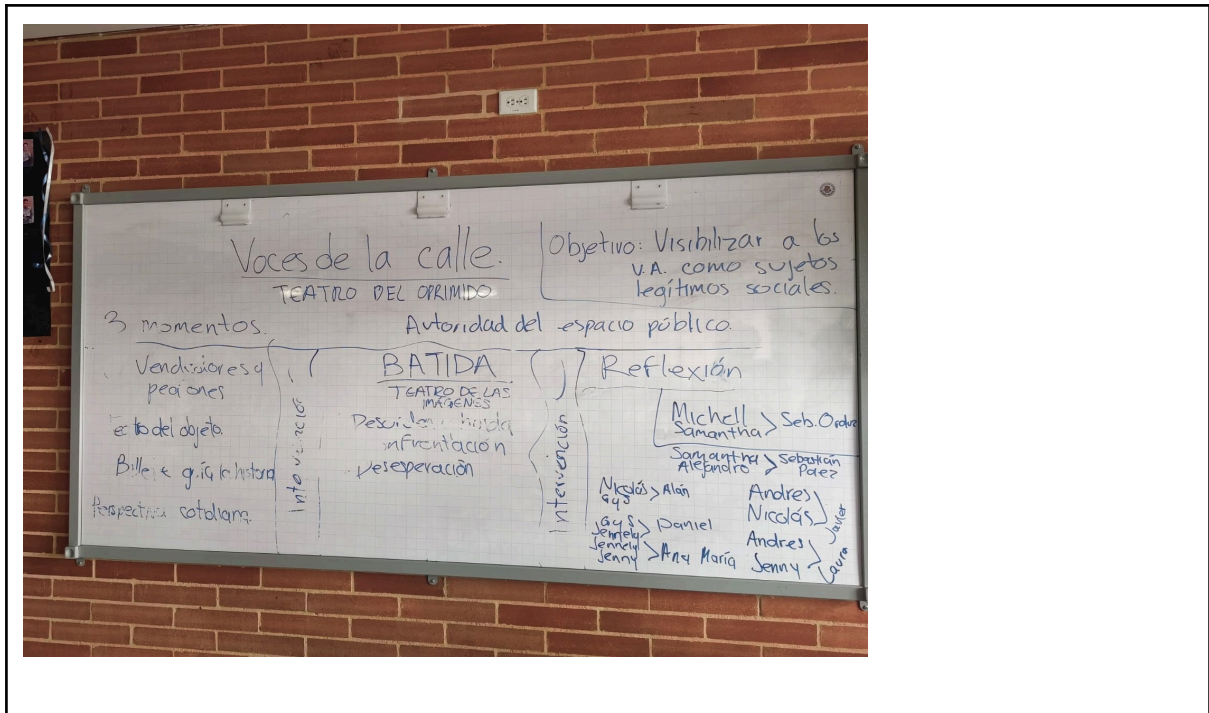 Voces de la calle.
TEATRO DEL OPRIMIDO
Objetivo: Visibilizar a los
V.A. como sujetos
legítimos sociales.
3 momentos.
Autoridad del espacio público.
Vendedores y
peatones
del objeto.
guía la historia
Perspectiva cotidiana.
Intervención
BATIDA
TEATRO DE LAS
IMÁGENES
Desesperación
Intervención
Reflexión
Michell
Samantha > Seb. Orduz
Samantha
Alejandro > Sebastián
Páez
Nicolás
Gys > Alán
Gys
Jennely > Daniel
Jennely
Jenny > Ana María
Andres
Nicolás > Javier
Andres
Jenny > Laura